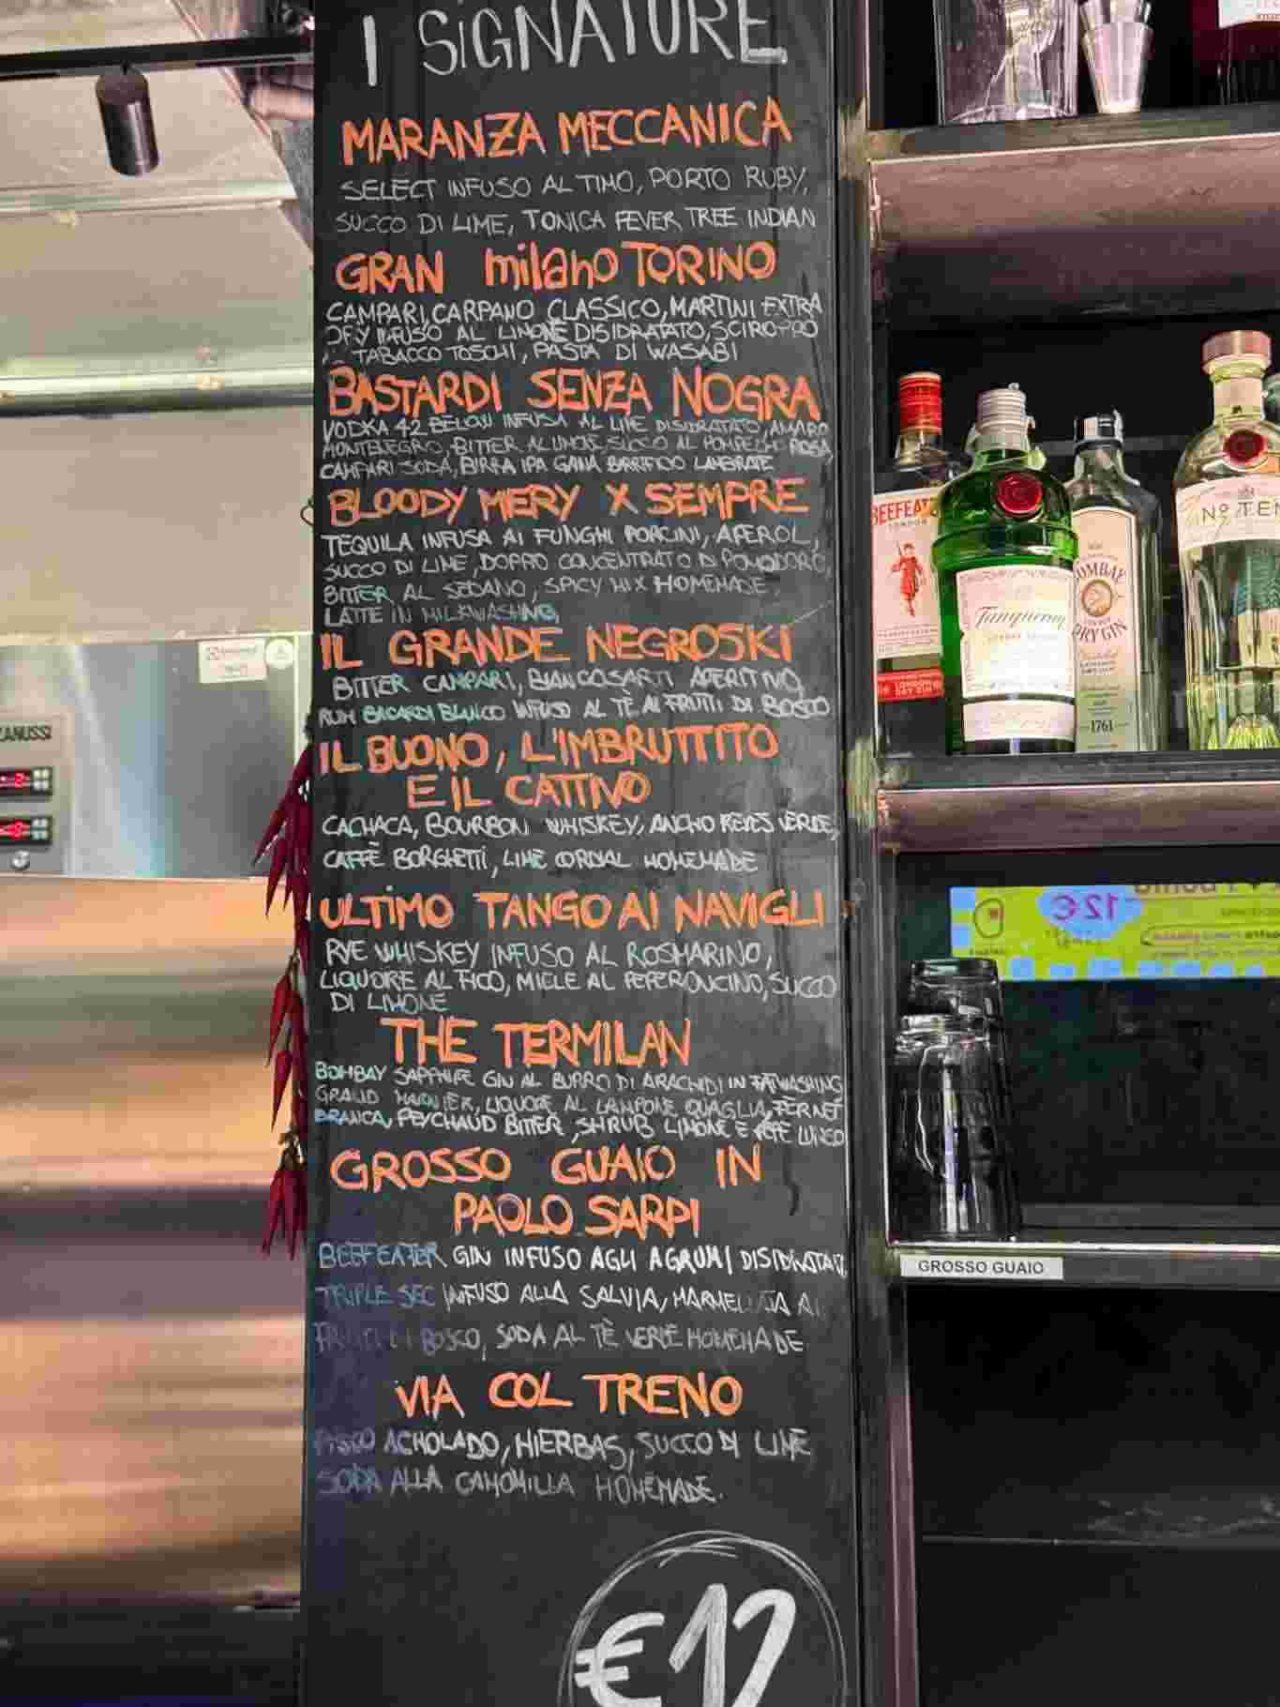 I SiGNATURE
MARANZA MECCANICA
SELECT INFUSO AL TIMO, PORTO RUBY,
SUCCO DI LIME, TONICA FEVER TREE INDIAN
GRAN milano TORINO
CAMPARI, CARPANO CLASSICO, MARTINI EXTRA
DRY INFUSO AL LIMONE DISIDRATATO, SCIROPPO
TABACCO TOSCHI, PASTA DI WASABI
BASTARDI SENZA NOGRA
VODKA 42 BELOW INFUSA AL LIME DISIDRATATO, AMARO
MONTENEGRO, BITTER AL LIMONE, SUCCO AL POMPELMO ROSA
CAMPARI SODA, BIRRA IPA GAINA BIRRIFICIO LAMBRATE
BLOODY MERY X SEMPRE
TEQUILA INFUSA AI FUNGHI PORCINI, APEROL,
SUCCO DI LIME, DOPPIO CONCENTRATO DI POMODORO,
BITTER AL SEDANO, SPICY MIX HOMEMADE,
LATTE IN MILKWASHING,
IL GRANDE NEGROSKI
BITTER CAMPARI, BIANCOSARTI APERITIVO,
RUM BACARDI BLANCO INFUSO AL TÈ AI FRUTTI DI BOSCO
IL BUONO, L'IMBRUTTITO
E IL CATTIVO
CACHACA, BOURBON WHISKEY, ANCHO REYES VERDE,
CAFFÈ BORGHETTI, LIME CORDIAL HOMEMADE
ULTIMO TANGO AI NAVIGLI
RYE WHISKEY INFUSO AL ROSMARINO,
LIQUORE AL FICO, MIELE AL PEPERONCINO, SUCCO
DI LIMONE
THE TERMILAN
BOMBAY SAPPHIRE GIN AL BURRO DI ARACHIDI IN FATWASHING
GRAND MARNIER, LIQUORE AL LAMPONE QUAGLIA, FERNET
BRANCA, PEYCHAUD BITTER, SHRUB LIMONE E PEPE LUNGO
GROSSO GUAIO IN
PAOLO SARPI
BEEFEATER GIN INFUSO AGLI AGRUMI DISIDRATATI,
TRIPLE SEC INFUSO ALLA SALVIA, MARMELLATA AI
FRUTTI DI BOSCO, SODA AL TÈ VERDE HOMEMADE
VIA COL TRENO
PISCO ACHOLADO, HIERBAS, SUCCO DI LIME
SODA ALLA CAMOMILLA HOMEMADE.
€12
ZANUSSI
BEEFEA
LONDON
Tanqueray
BOMBAY
DRY GIN
1761
Nº TEN
12€
GROSSO GUAIO